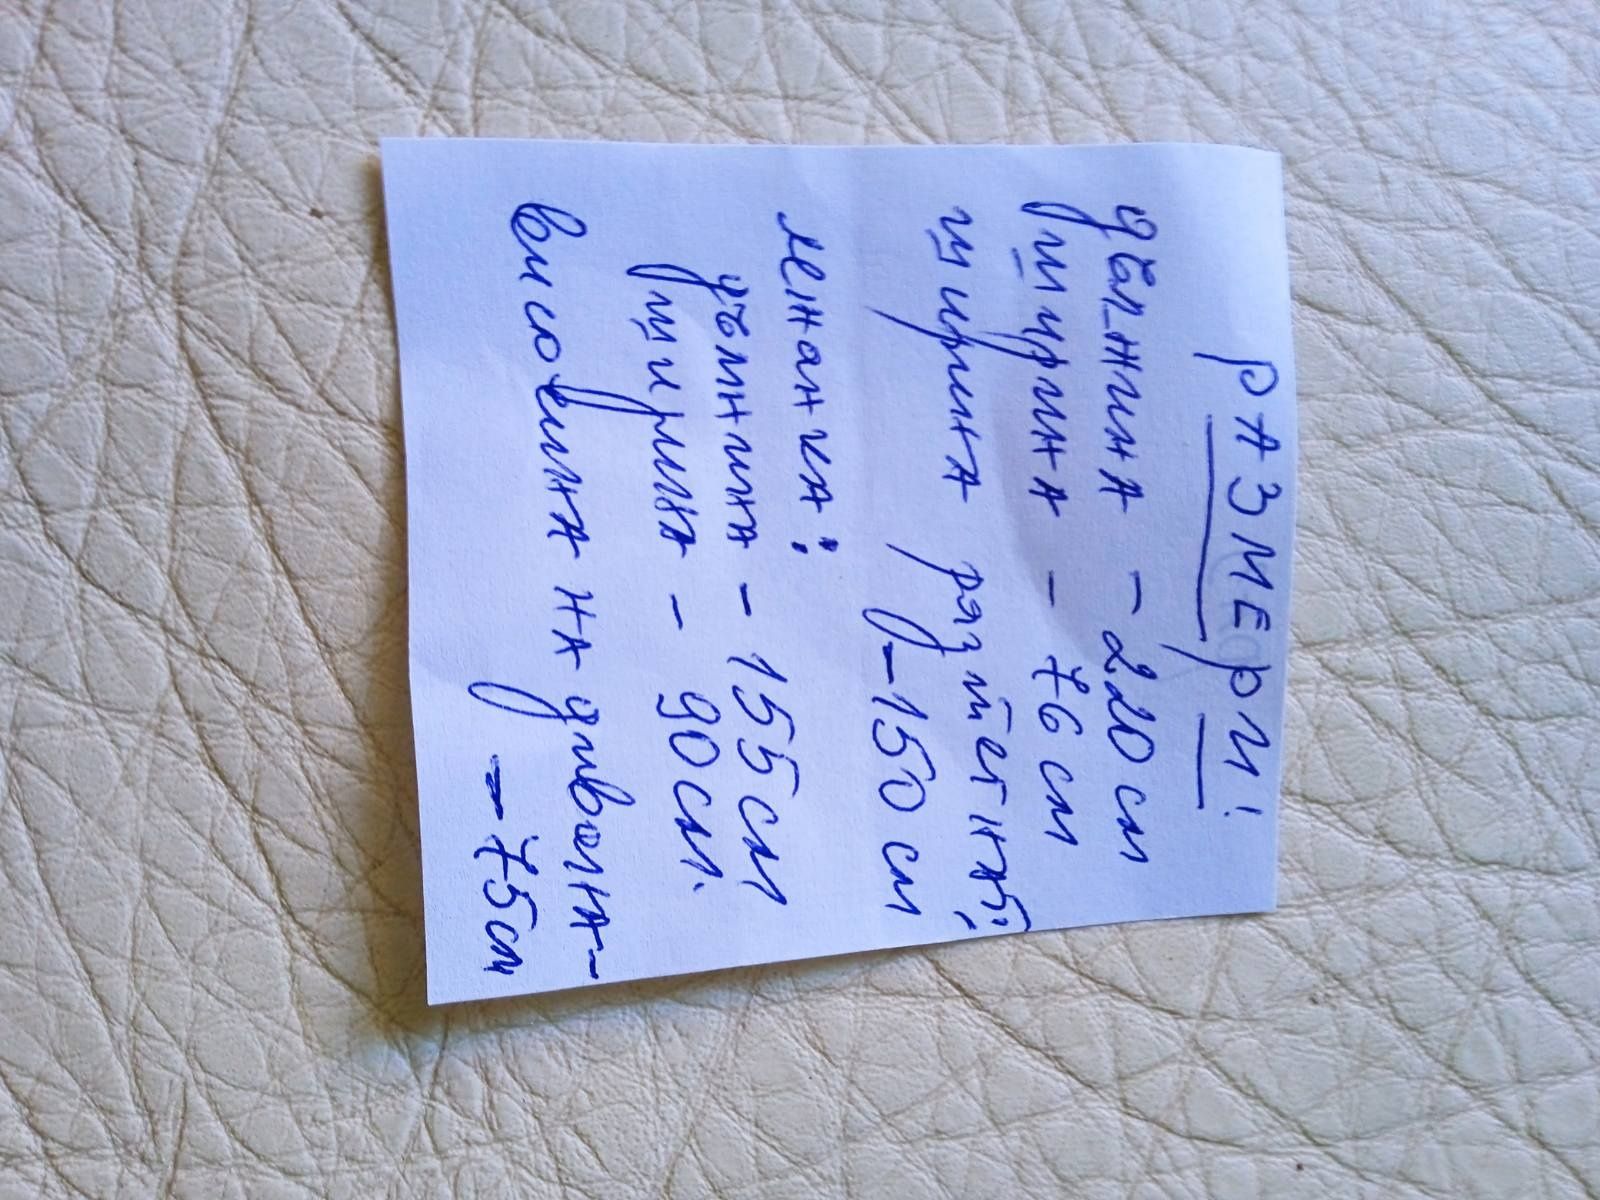 РАЗМЕРИ:
дължина - 220 см
ширина - 76 см
ширина разтегнат:
- 150 см
лежанка:
дължина - 155 см
ширина - 90 см.
височина на дивана -
- 75 см